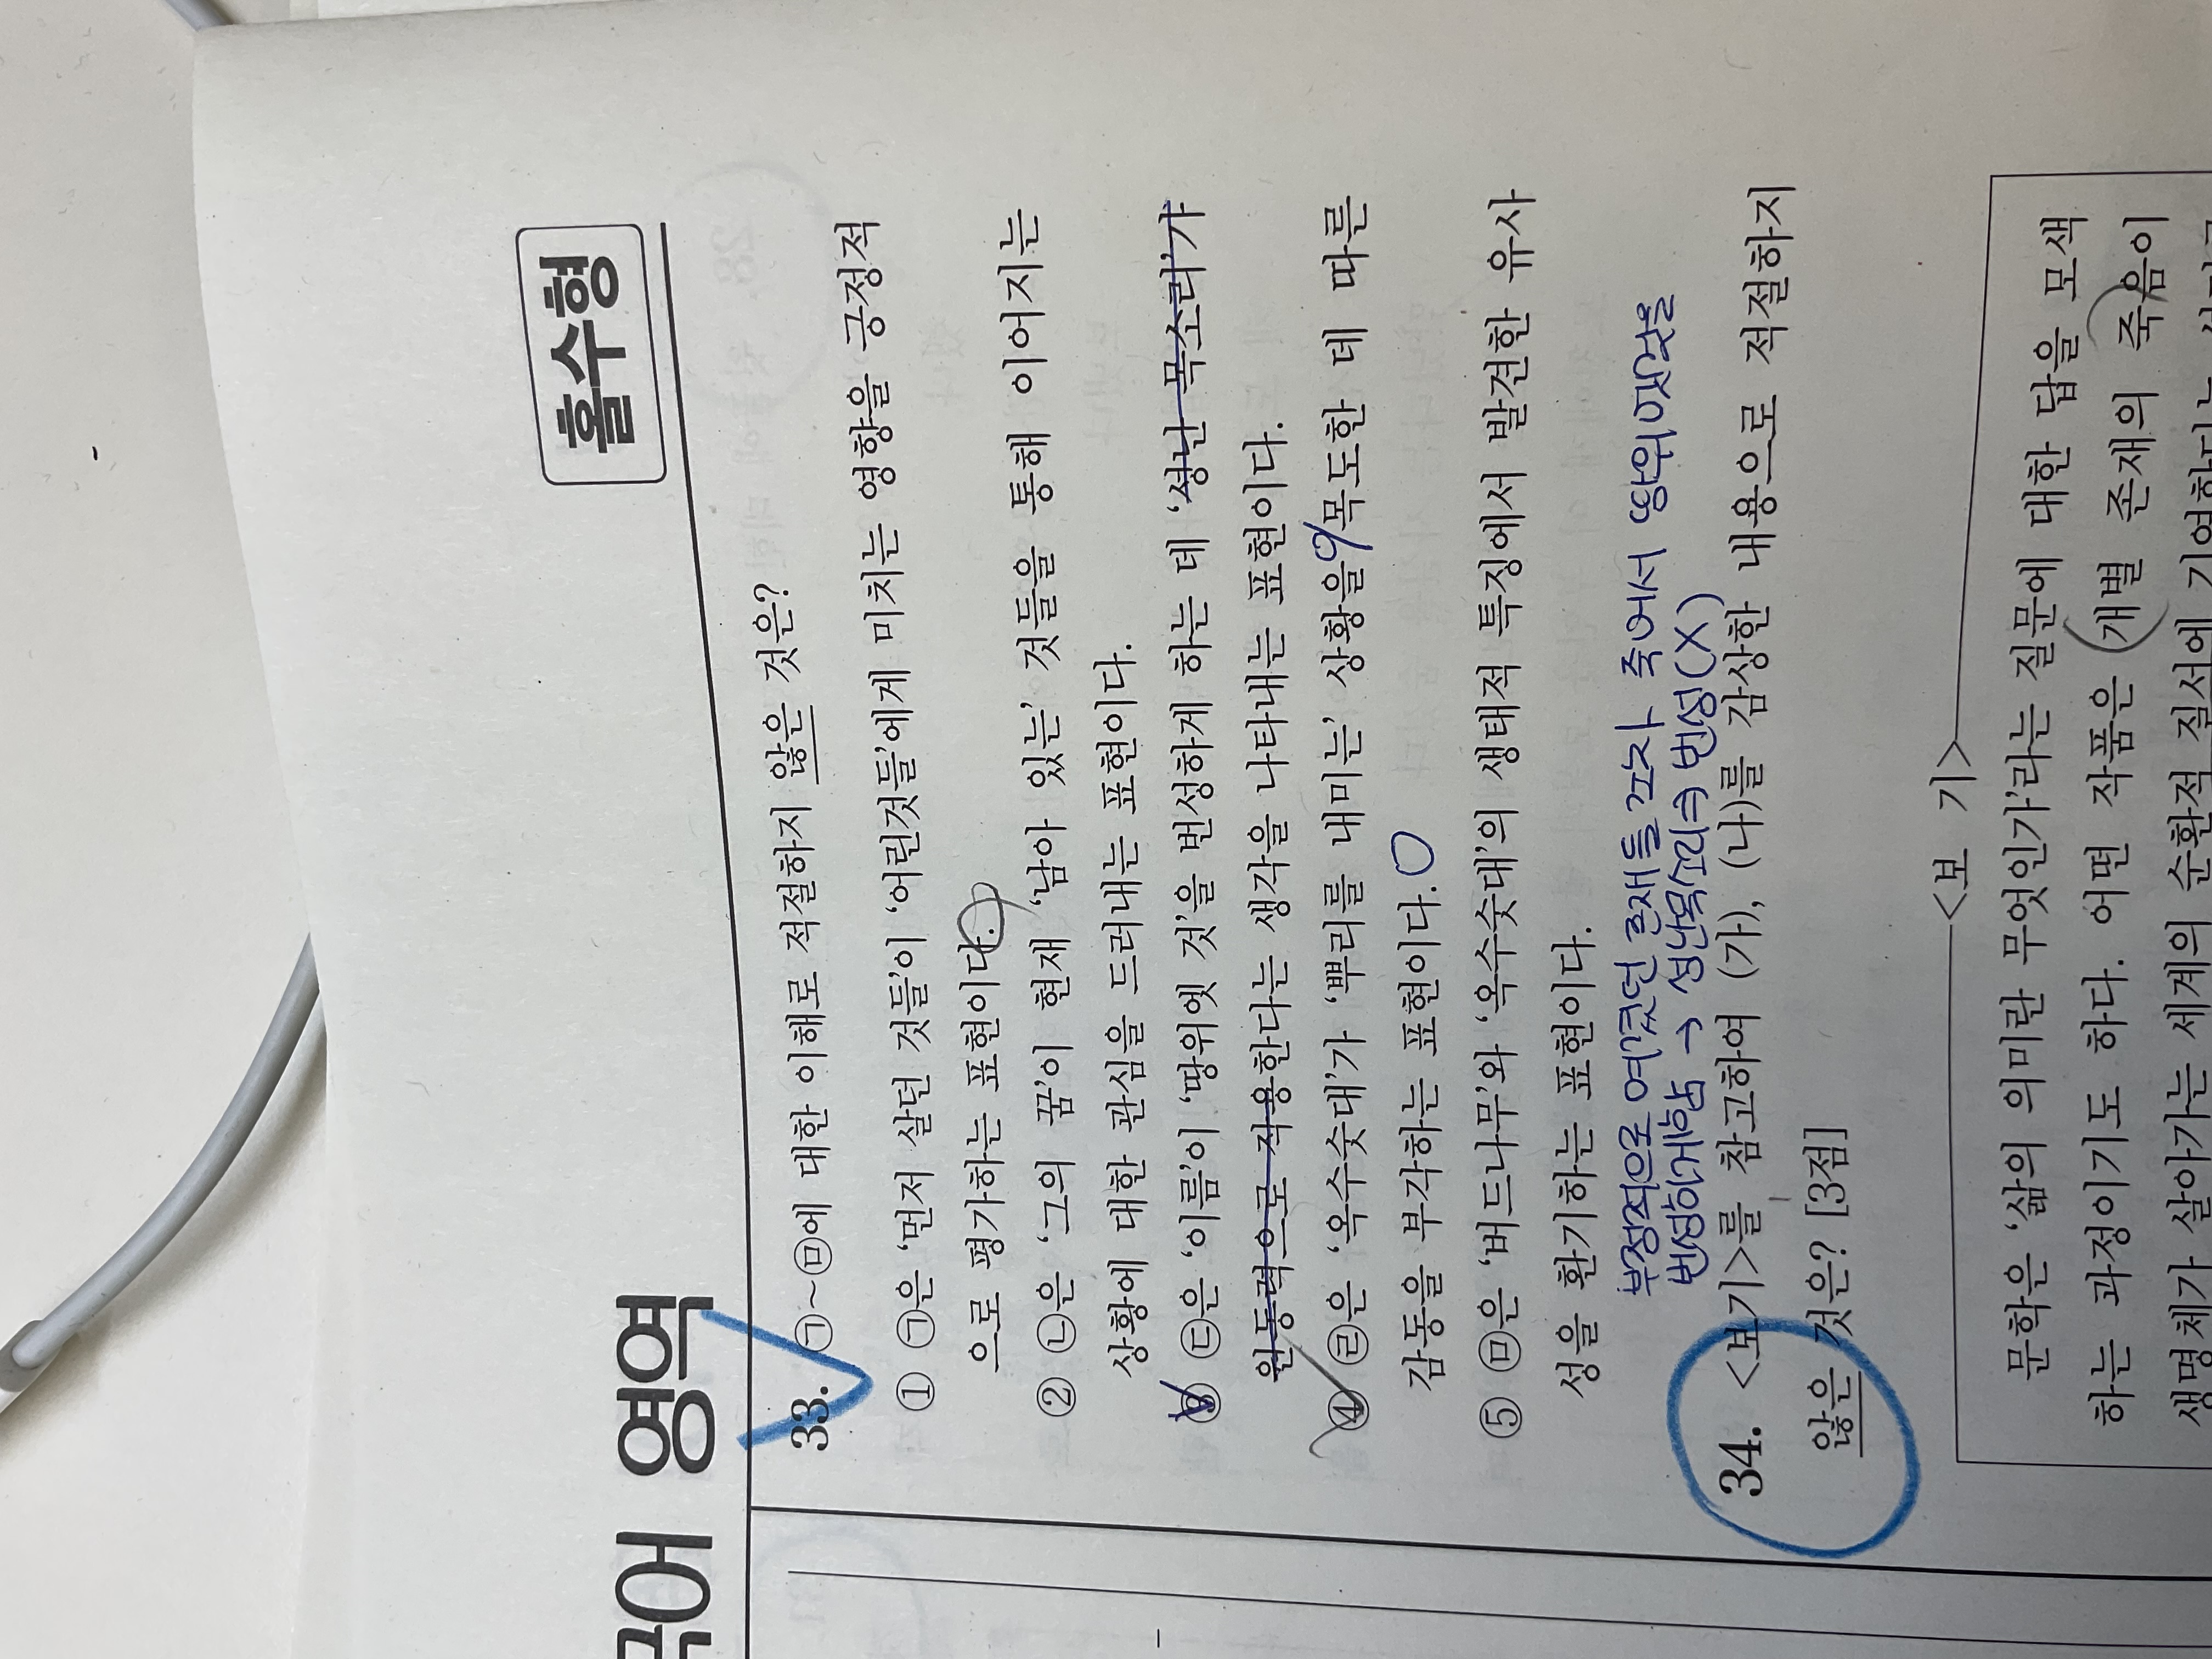 국어 영역
홀수형
33. ㉠~㉤에 대한 이해로 적절하지 않은 것은?
① ㉠은 '먼저 살던 것들'이 '어린것들'에게 미치는 영향을 긍정적
으로 평가하는 표현이다.
② ㉡은 '그의 꿈'이 현재 '남아 있는' 것들을 통해 이어지는
상황에 대한 관심을 드러내는 표현이다.
③ ㉢은 '이름'이 '땅위엣 것'을 번성하게 하는 데 '성난 목소리'가
원동력으로 작용한다는 생각을 나타내는 표현이다.
④ ㉣은 '옥수숫대'가 '뿌리를 내미는' 상황을 목도한 데 따른
감동을 부각하는 표현이다.
⑤ ㉤은 '버드나무'와 '옥수숫대'의 생태적 특징에서 발견한 유사
성을 환기하는 표현이다.
부정적으로 여겼던 존재들 각자 죽어서 땅위엣것을
번성하게함 → 성난목소리⇒번성(X)
34. <보기>를 참고하여 (가), (나)를 감상한 내용으로 적절하지
않은 것은? [3점]
<보 기>
문학은 '삶의 의미란 무엇인가'라는 질문에 대한 답을 모색
하는 과정이기도 하다. 어떤 작품은 개별 존재의 죽음이
생명체가 살아가는 세계의 순환적 질서에 기여한다는